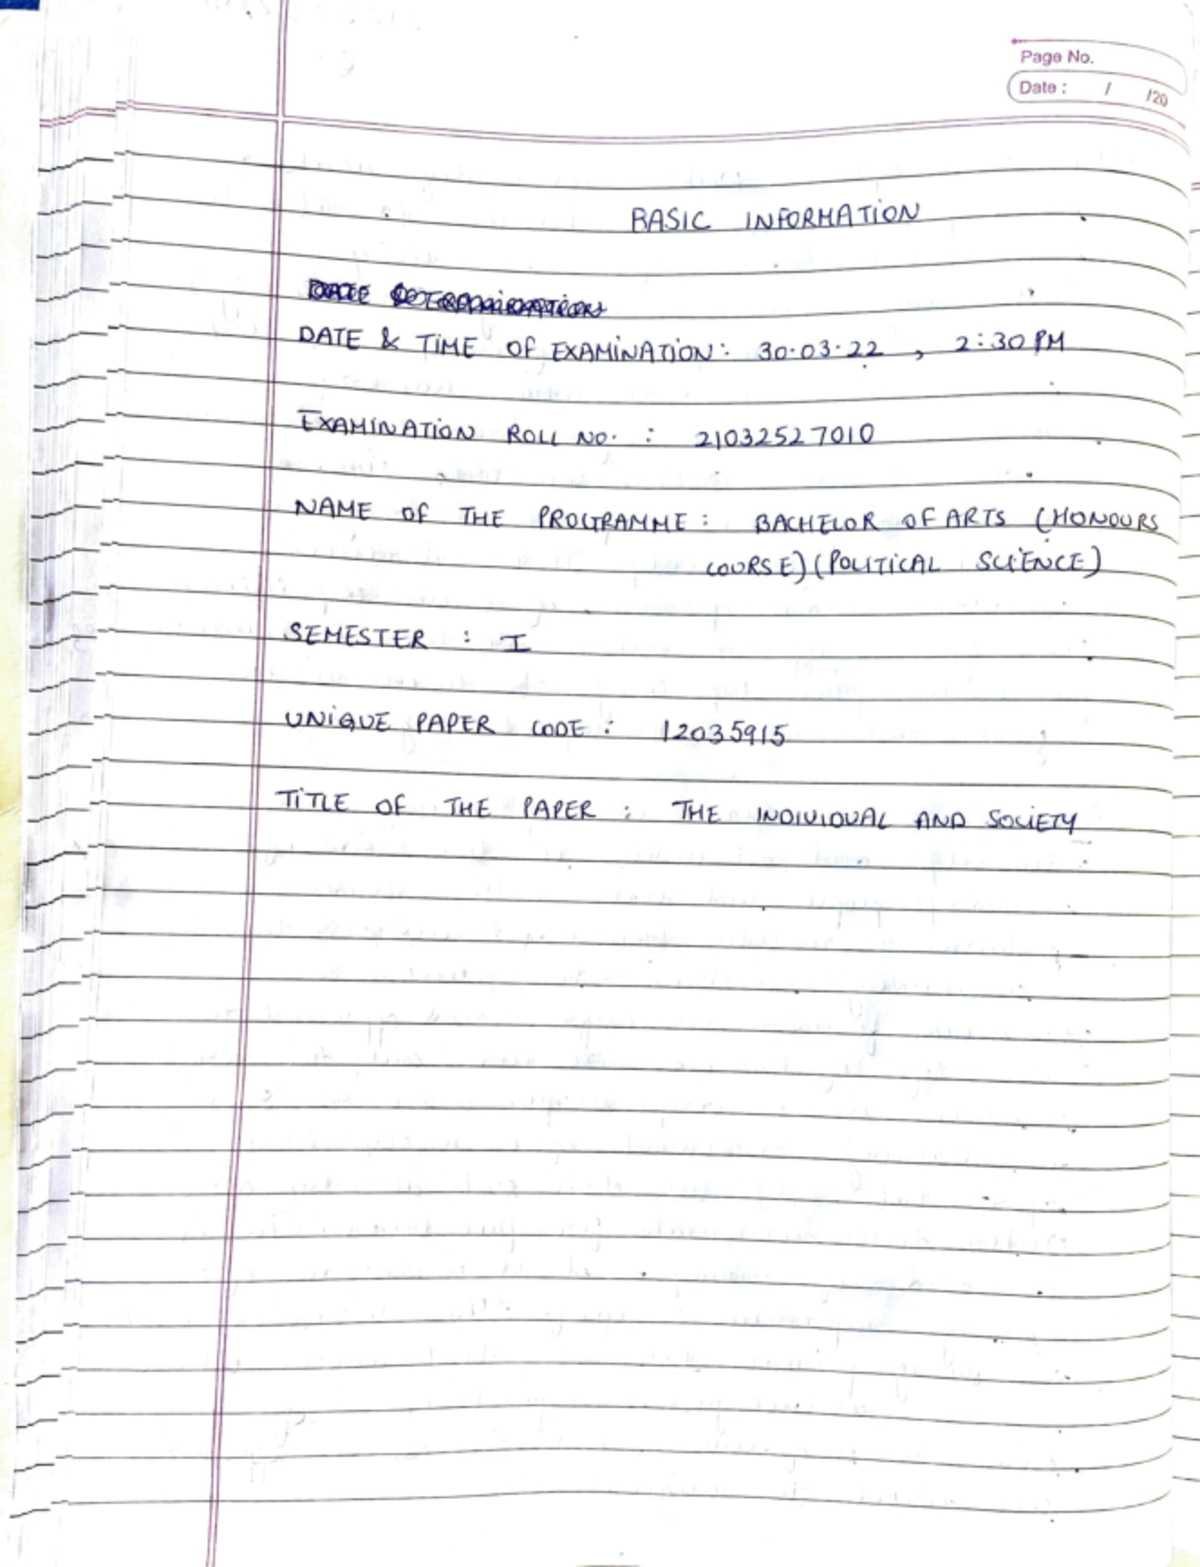 Page No.
Date : / /20
BASIC INFORMATION
DATE & TIME OF EXAMINATION: 30.03.22 , 2:30 PM
EXAMINATION ROLL NO. : 21032527010
NAME OF THE PROGRAMME : BACHELOR OF ARTS (HONOURS
COURSE) (POLITICAL SCIENCE)
SEMESTER : I
UNIQUE PAPER CODE : 12035915
TITLE OF THE PAPER : THE INDIVIDUAL AND SOCIETY